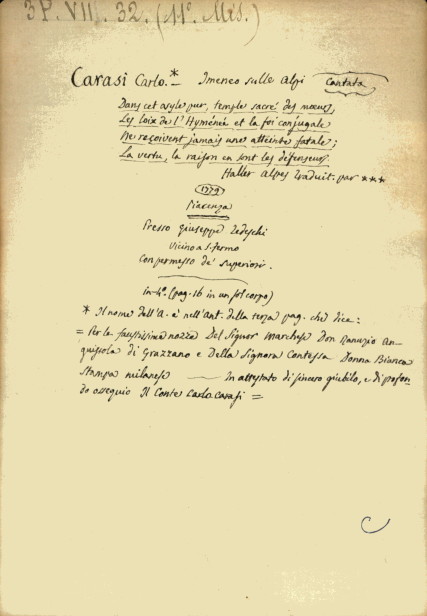 3P. VII. 32. (11º Mis.)
Carasi Carlo.* — Imeneo sulle Alpi Cantata
Dans cet asyle pur, temple sacré des mœurs,
Les loix de l'Hyménée et la foi conjugale
Ne reçoivent jamais une atteinte fatale;
La vertu, la raison en sont les défenseurs.
Haller Alpes traduit. par ***
1779
Piacenza
Presso Giuseppe Tedeschi
Vicino a S. Fermo
Con permesso de' Superiori.
In-4º. (pag. 16 in un sol corpo)
* Il nome dell'A. è nell'ant. della terza pag. che dice:
= Per le faustissime nozze Del Signor Marchese Don Ranuzio An-
guissola di Grazzano e Della Signora Contessa Donna Bianca
Stampa milanese — In attestato di sincero giubilo, e di profon-
do ossequio Il Conte Carlo Carasi =
C